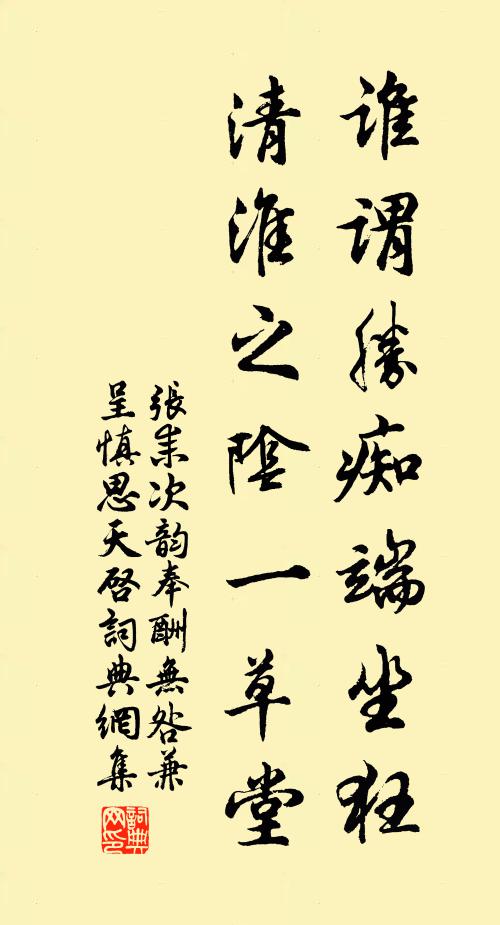 谁謂勝痴端坐狂
清淮之陰一草堂
張耒次韵奉酬無咎兼
呈慎思天啓詞典網集
詞典網印